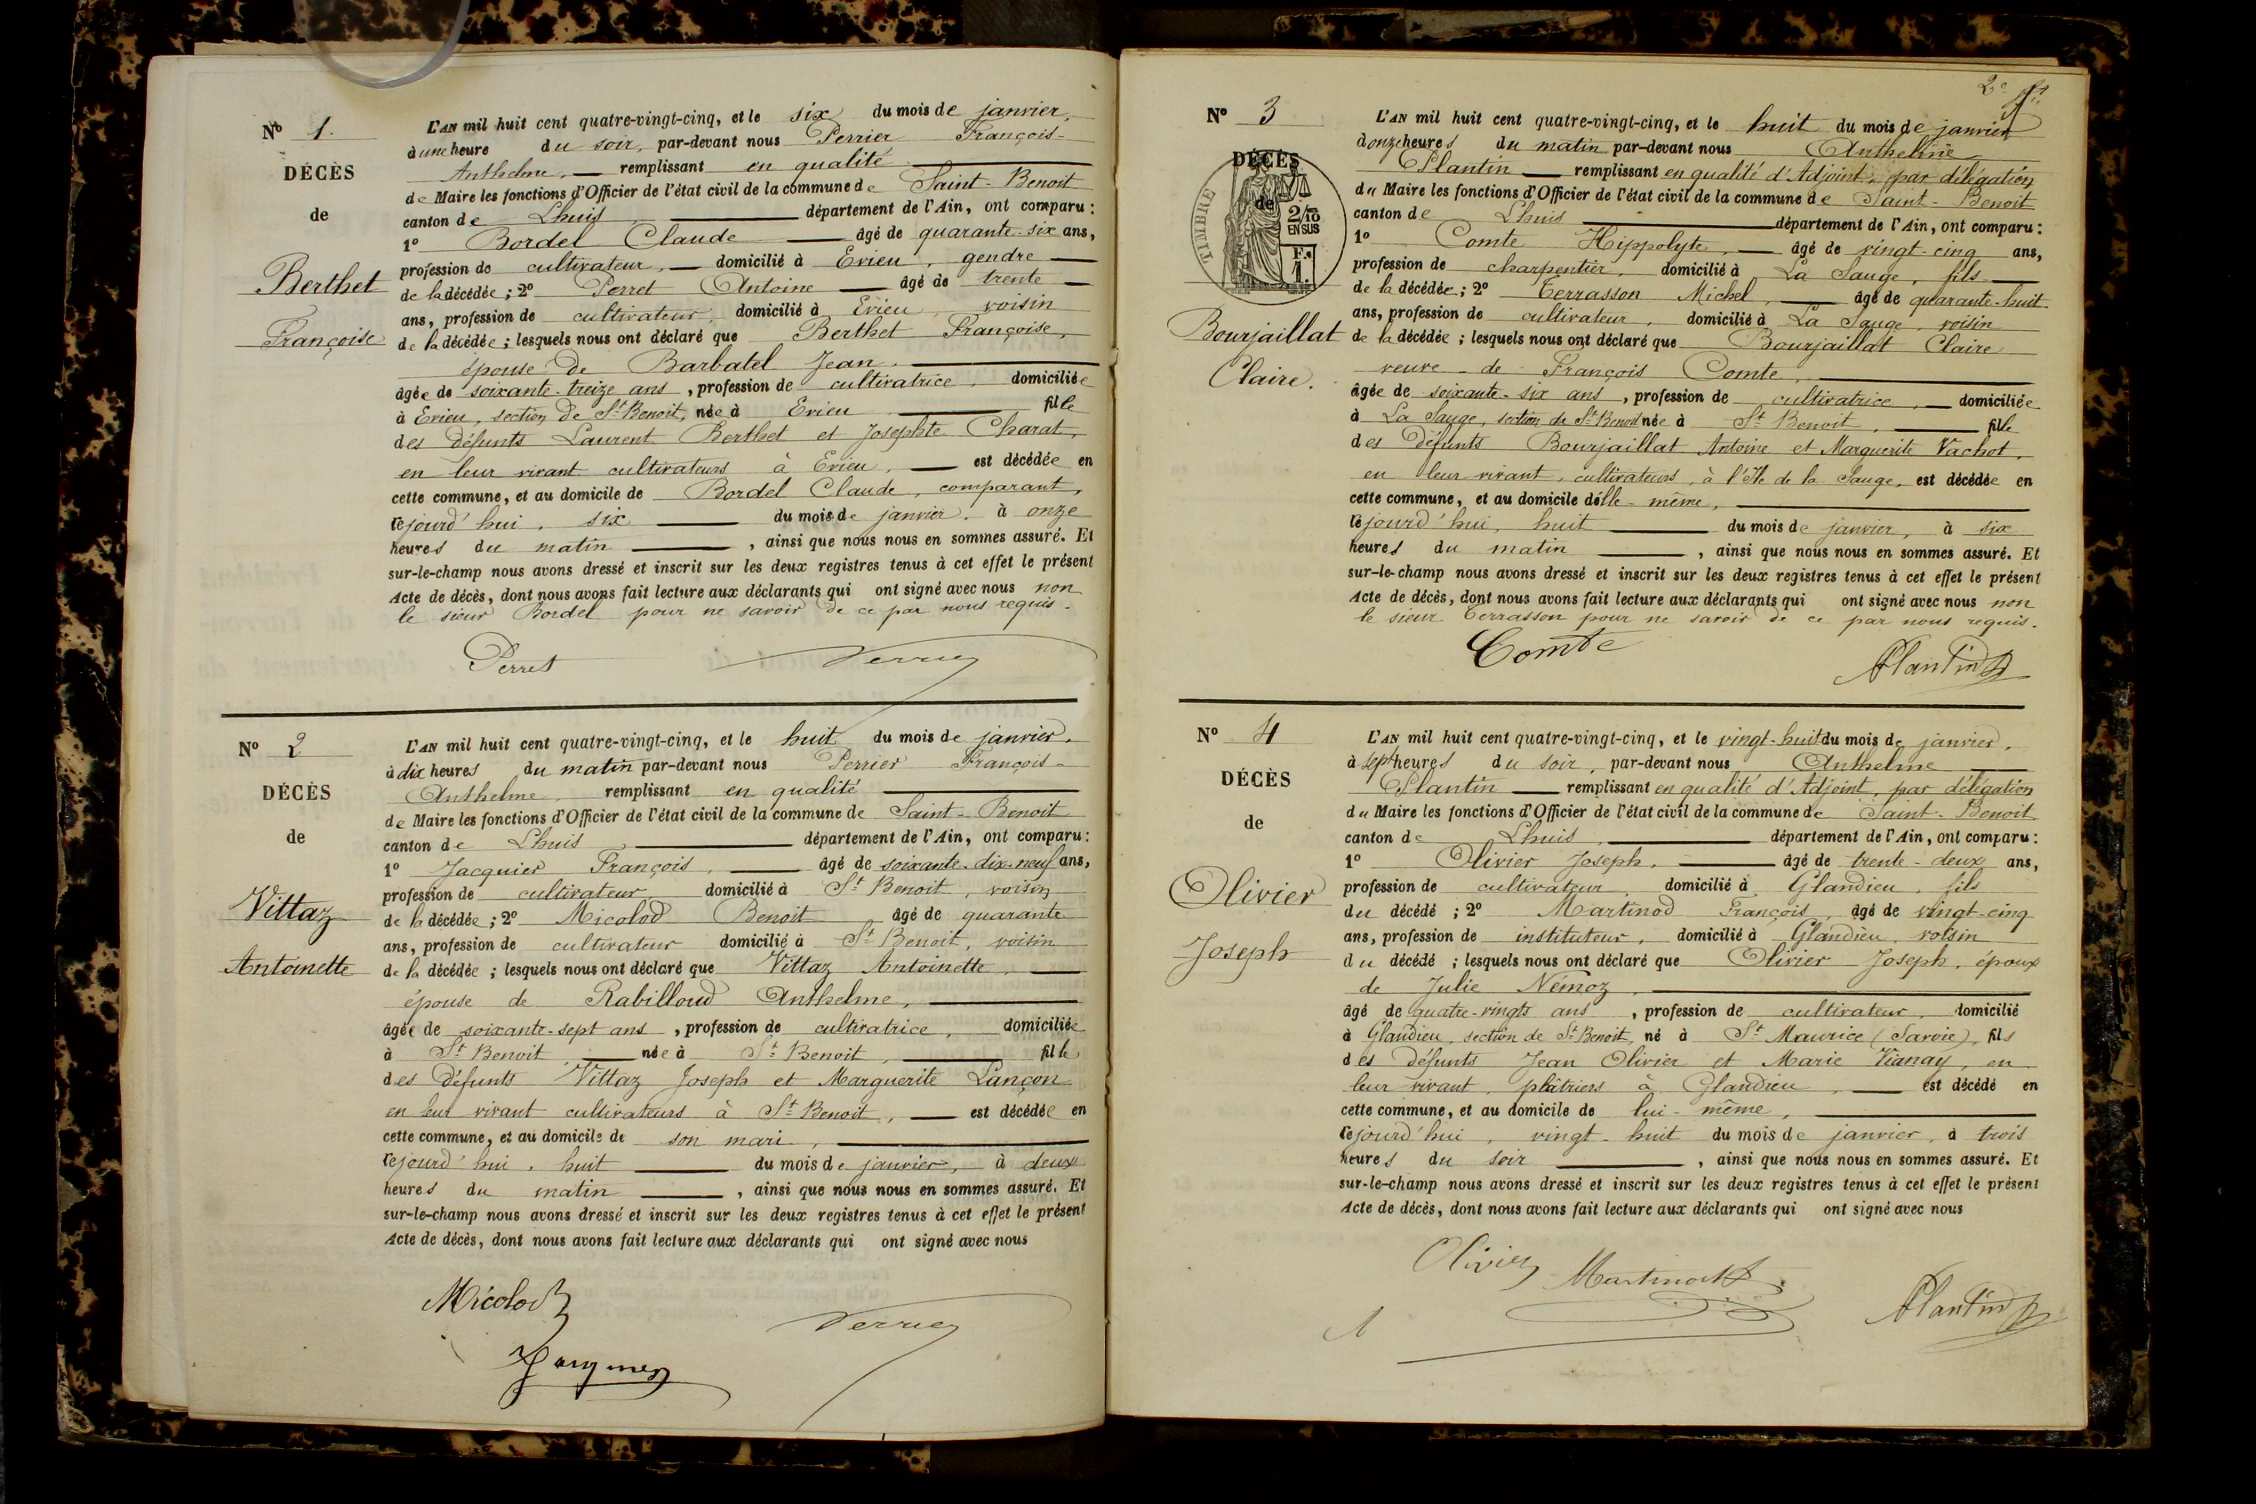 N° 1.
DÉCÈS
de
Berthet
Françoise
L'AN mil huit cent quatre-vingt-cinq, et le six du mois de janvier,
à une heure du soir, par-devant nous Perrier François-
Anthelme, remplissant en qualité
de Maire les fonctions d'Officier de l'état civil de la commune de Saint-Benoit
canton de Lhuis département de l'Ain, ont comparu :
1° Bordel Claude âgé de quarante-six ans,
profession de cultivateur, domicilié à Evieu, gendre
de la décédée ; 2° Perret Antoine âgé de trente
ans, profession de cultivateur, domicilié à Evieu, voisin
de la décédée ; lesquels nous ont déclaré que Berthet Françoise,
épouse de Barbatel Jean,
âgée de soixante-treize ans, profession de cultivatrice, domiciliée
à Evieu, section de St Benoit, née à Evieu fille
des défunts Laurent Berthet et Josephte Charat,
en leur vivant cultivateurs à Evieu, est décédée en
cette commune, et au domicile de Bordel Claude, comparant,
cejourd'hui, six du mois de janvier, à onze
heures du matin, ainsi que nous nous en sommes assuré. Et
sur-le-champ nous avons dressé et inscrit sur les deux registres tenus à cet effet le présent
Acte de décès, dont nous avons fait lecture aux déclarants qui ont signé avec nous non
le sieur Bordel pour ne savoir de ce par nous requis.
Perret Perrier
N° 2
DÉCÈS
de
Vittaz
Antoinette
L'AN mil huit cent quatre-vingt-cinq, et le huit du mois de janvier,
à dix heures du matin par-devant nous Perrier François-
Anthelme, remplissant en qualité
de Maire les fonctions d'Officier de l'état civil de la commune de Saint-Benoit
canton de Lhuis, département de l'Ain, ont comparu :
1° Jacquier François, âgé de soixante-dix-neuf ans,
profession de cultivateur domicilié à St Benoit, voisin
de la décédée ; 2° Micolod Benoit âgé de quarante
ans, profession de cultivateur domicilié à St Benoit, voisin
de la décédée ; lesquels nous ont déclaré que Vittaz Antoinette,
épouse de Rabilloud Anthelme,
âgée de soixante-sept ans, profession de cultivatrice, domiciliée
à St Benoit, née à St Benoit, fille
des défunts Vittaz Joseph et Marguerite Lançon
en leur vivant cultivateurs à St Benoit, est décédée en
cette commune, et au domicile de son mari,
cejourd'hui, huit du mois de janvier, à deux
heures du matin, ainsi que nous nous en sommes assuré. Et
sur-le-champ nous avons dressé et inscrit sur les deux registres tenus à cet effet le présent
Acte de décès, dont nous avons fait lecture aux déclarants qui ont signé avec nous
Micolod
Perrier
Jacquier
2e
N° 3
DÉCÈS
de
TIMBRE
2/10
EN SUS
F.
1.
Bourjaillat
Claire.
L'AN mil huit cent quatre-vingt-cinq, et le huit du mois de janvier
à onze heures du matin par-devant nous Anthelme
Plantin remplissant en qualité d'Adjoint, par délégation
du Maire les fonctions d'Officier de l'état civil de la commune de Saint-Benoit
canton de Lhuis département de l'Ain, ont comparu :
1° Comte Hippolyte, âgé de vingt-cinq ans,
profession de charpentier, domicilié à La Sauge, fils
de la décédée ; 2° Terrasson Michel, âgé de quarante-huit
ans, profession de cultivateur, domicilié à La Sauge, voisin
de la décédée ; lesquels nous ont déclaré que Bourjaillat Claire
veuve de François Comte,
âgée de soixante-six ans, profession de cultivatrice, domiciliée
à La Sauge, section de St Benoit née à St Benoit, fille
des défunts Bourjaillat Antoine et Marguerite Vachot,
en leur vivant, cultivateurs, à l'Ile de la Sauge, est décédée en
cette commune, et au domicile d'elle-même,
cejourd'hui, huit du mois de janvier, à six
heures du matin, ainsi que nous nous en sommes assuré. Et
sur-le-champ nous avons dressé et inscrit sur les deux registres tenus à cet effet le présent
Acte de décès, dont nous avons fait lecture aux déclarants qui ont signé avec nous non
le sieur Terrasson pour ne savoir de ce par nous requis.
Comte Plantin
N° 4
DÉCÈS
de
Olivier
Joseph
L'AN mil huit cent quatre-vingt-cinq, et le vingt-huit du mois de janvier,
à sept heures du soir, par-devant nous Anthelme
Plantin remplissant en qualité d'Adjoint, par délégation
du Maire les fonctions d'Officier de l'état civil de la commune de Saint-Benoit
canton de Lhuis, département de l'Ain, ont comparu :
1° Olivier Joseph, âgé de trente-deux ans,
profession de cultivateur, domicilié à Glandieu, fils
du décédé ; 2° Martinod François, âgé de vingt-cinq
ans, profession de instituteur, domicilié à Glandieu, voisin
du décédé ; lesquels nous ont déclaré que Olivier Joseph, époux
de Julie Némoz,
âgé de quatre-vingts ans, profession de cultivateur, domicilié
à Glandieu, section de St Benoit, né à St Maurice (Savoie), fils
des défunts Jean Olivier et Marie Vianay, en
leur vivant, plâtriers à Glandieu, est décédé en
cette commune, et au domicile de lui-même,
cejourd'hui, vingt-huit du mois de janvier, à trois
heures du soir, ainsi que nous nous en sommes assuré. Et
sur-le-champ nous avons dressé et inscrit sur les deux registres tenus à cet effet le présent
Acte de décès, dont nous avons fait lecture aux déclarants qui ont signé avec nous
Olivier Martinod Plantin